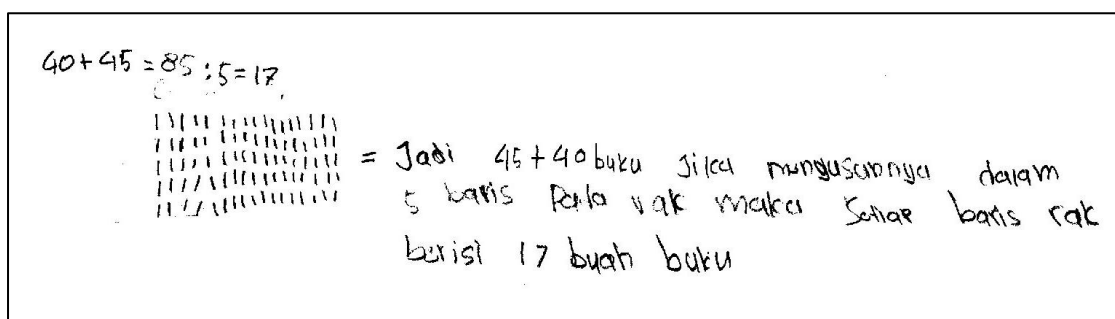 40+45=85:5=17
= Jadi 45+40 buku Jika mengusunnya dalam
5 baris Pada rak maka Setiap baris rak
berisi 17 buah buku